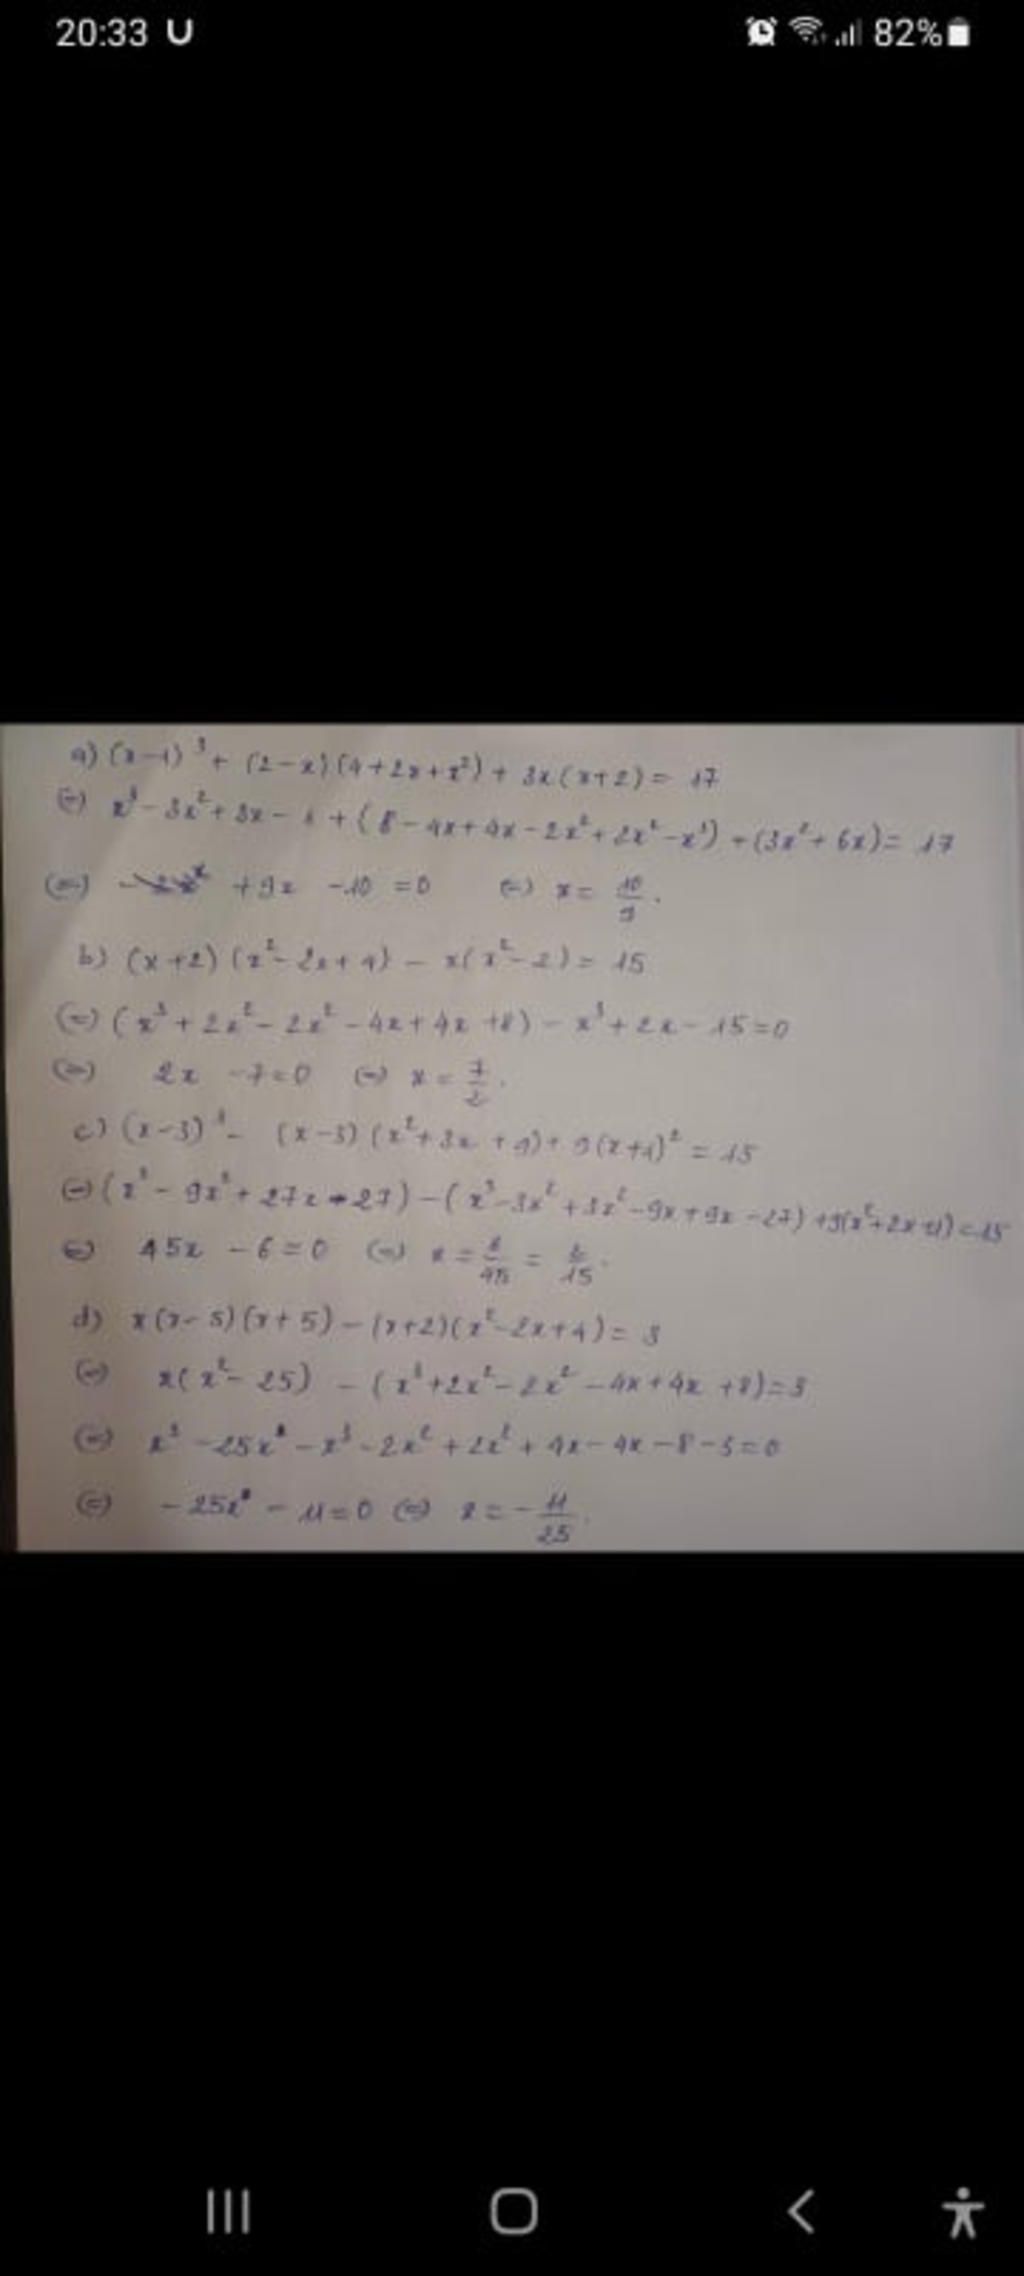 20:33 U 82%
a) (x-1)³ + (2-x)(4+2x+x²) + 3x(x+2) = 17
(=) x³-3x²+3x-1+(8-4x+4x-2x²+2x²-x³)+(3x²+6x)=17
(=) +9x -10 =0 (=) x= 10/9.
b) (x+2)(x²-2x+4) - x(x²-2) = 15
(=) (x³+2x²-2x²-4x+4x+8) - x³+2x-15=0
(=) 2x -7=0 (=) x= 7/2.
c) (x-3)³- (x-3)(x²+3x+9)+9(x+1)² = 15
(=) (x³-9x²+27x-27)-(x³-3x²+3x²-9x+9x-27)+9(x²+2x+1)=15
(=) 45x -6=0 (=) x= 6/45 = 2/15.
d) x(x-5)(x+5)-(x+2)(x²-2x+4)= 3
(=) x(x²-25) -(x³+2x²-2x²-4x+4x+8)=3
(=) x³-25x-x³-2x²+2x²+4x-4x-8-3=0
(=) -25x-11=0 (=) x=- 11/25.